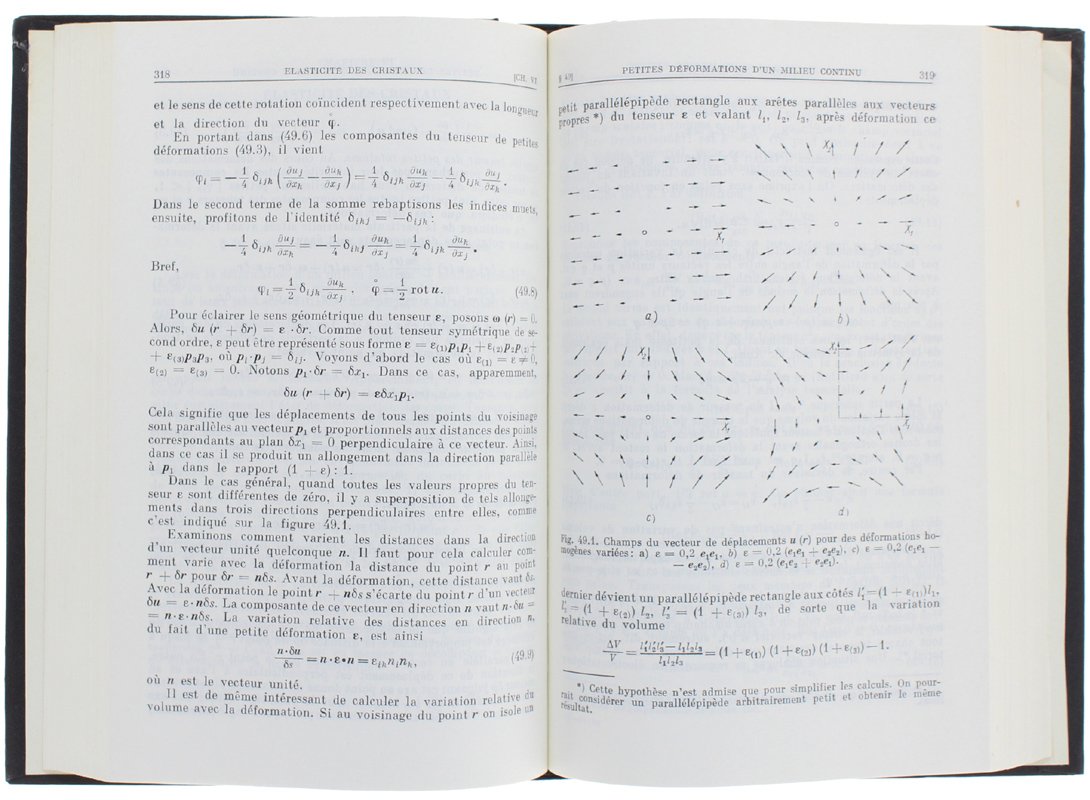 318 ELASTICITÉ DES CRISTAUX [CH. VI
et le sens de cette rotation coïncident respectivement avec la longueur
et la direction du vecteur φ̊.
En portant dans (49.6) les composantes du tenseur de petites
déformations (49.3), il vient
φᵢ = — 1/4 δᵢⱼₖ (∂uⱼ/∂xₖ — ∂uₖ/∂xⱼ) = 1/4 δᵢⱼₖ ∂uₖ/∂xⱼ — 1/4 δᵢⱼₖ ∂uⱼ/∂xₖ.
Dans le second terme de la somme rebaptisons les indices muets,
ensuite, profitons de l'identité δᵢₖⱼ = —δᵢⱼₖ:
— 1/4 δᵢⱼₖ ∂uⱼ/∂xₖ = — 1/4 δᵢₖⱼ ∂uₖ/∂xⱼ = 1/4 δᵢⱼₖ ∂uₖ/∂xⱼ.
Bref,
φᵢ = 1/2 δᵢⱼₖ ∂uₖ/∂xⱼ, φ̊ = 1/2 rot u. (49.8)
Pour éclairer le sens géométrique du tenseur ε, posons ω (r) = 0.
Alors, δu (r + δr) = ε ·δr. Comme tout tenseur symétrique de se-
cond ordre, ε peut être représenté sous forme ε = ε₍₁₎p₁p₁ + ε₍₂₎p₂p₂ +
+ ε₍₃₎p₃p₃, où pᵢ·pⱼ = δᵢⱼ. Voyons d'abord le cas où ε₍₁₎ = ε ≠ 0,
ε₍₂₎ = ε₍₃₎ = 0. Notons p₁·δr = δx₁. Dans ce cas, apparemment,
δu (r + δr) = εδx₁p₁.
Cela signifie que les déplacements de tous les points du voisinage
sont parallèles au vecteur p₁ et proportionnels aux distances des points
correspondants au plan δx₁ = 0 perpendiculaire à ce vecteur. Ainsi,
dans ce cas il se produit un allongement dans la direction parallèle
à p₁ dans le rapport (1 + ε) : 1.
Dans le cas général, quand toutes les valeurs propres du ten-
seur ε sont différentes de zéro, il y a superposition de tels allonge-
ments dans trois directions perpendiculaires entre elles, comme
c'est indiqué sur la figure 49.1.
Examinons comment varient les distances dans la direction
d'un vecteur unité quelconque n. Il faut pour cela calculer com-
ment varie avec la déformation la distance du point r au point
r + δr pour δr = nδs. Avant la déformation, cette distance vaut δs.
Avec la déformation le point r + nδs s'écarte du point r d'un vecteur
δu = ε·nδs. La composante de ce vecteur en direction n vaut n·δu =
= n·ε·nδs. La variation relative des distances en direction n,
du fait d'une petite déformation ε, est ainsi
n·δu/δs = n·ε·n = εᵢₖnᵢnₖ, (49.9)
où n est le vecteur unité.
Il est de même intéressant de calculer la variation relative du
volume avec la déformation. Si au voisinage du point r on isole un
§ 49] PETITES DÉFORMATIONS D'UN MILIEU CONTINU 319
petit parallélépipède rectangle aux arêtes parallèles aux vecteurs
propres *) du tenseur ε et valant l₁, l₂, l₃, après déformation ce
X₁
a)
X₂
X₁
b)
X₂
X₁
c)
X₂
X₁
d)
Fig. 49.1. Champs du vecteur de déplacements u (r) pour des déformations ho-
mogènes variées: a) ε = 0,2 e₁e₁, b) ε = 0,2 (e₁e₁ + e₂e₂), c) ε = 0,2 (e₁e₁ —
— e₂e₂), d) ε = 0,2 (e₁e₂ + e₂e₁).
dernier dévient un parallélépipède rectangle aux côtés l₁′ = (1 + ε₍₁₎)l₁,
l₂′ = (1 + ε₍₂₎) l₂, l₃′ = (1 + ε₍₃₎) l₃, de sorte que la variation
relative du volume
ΔV/V = (l₁′l₂′l₃′ — l₁l₂l₃)/(l₁l₂l₃) = (1 + ε₍₁₎) (1 + ε₍₂₎) (1 + ε₍₃₎) — 1.
*) Cette hypothèse n'est admise que pour simplifier les calculs. On pour-
rait considérer un parallélépipède arbitrairement petit et obtenir le même
résultat.